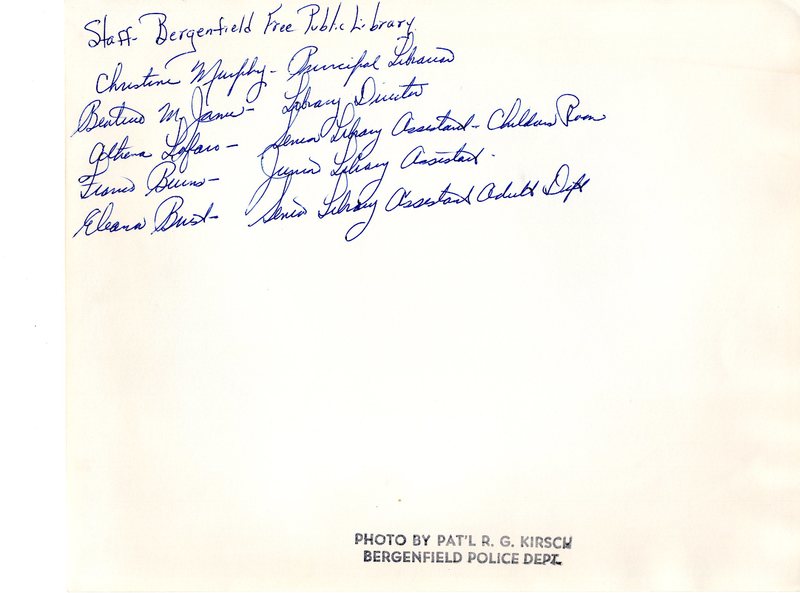 Staff- Bergenfield Free Public Library
Christine Murphy- Principal Librarian
M. Library Director
Athena Lofaro - Senior Library Assistant- Childrens Room
Burns- Junior Library Assistant.
Senior Library Assistant Adult Dept
PHOTO BY PAT'L R. G. KIRSCH
BERGENFIELD POLICE DEPT.